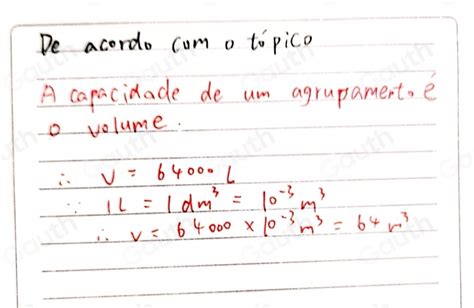 De acordo com o tópico
A capacidade de um agrupamento é
o volume.
∴ V = 64000 L
∵ 1L = 1dm³ = 10⁻³ m³
∴ V = 64000 × 10⁻³ m³ = 64 m³